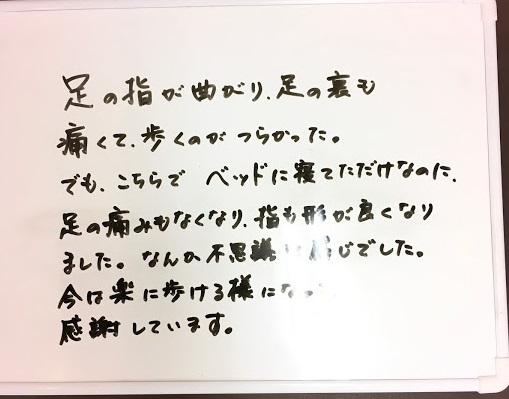 足の指が曲がり、足の裏も
痛くて、歩くのがつらかった。
でも、こちらで ベッドに寝てただけなのに、
足の痛みもなくなり、指も形が良くなり
ました。なんか不思議 感じでした。
今は楽に歩ける様になっ
感謝しています。